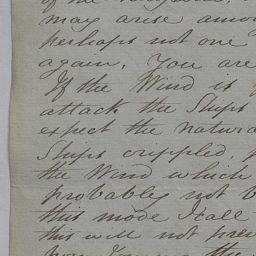 of the
may arise amon
perhaps not one
again, You are
If the Wind is
attack the Ships
expect the natura
Ships crippled,
the Wind which
probably not b
this mode I call
this will not prev
the